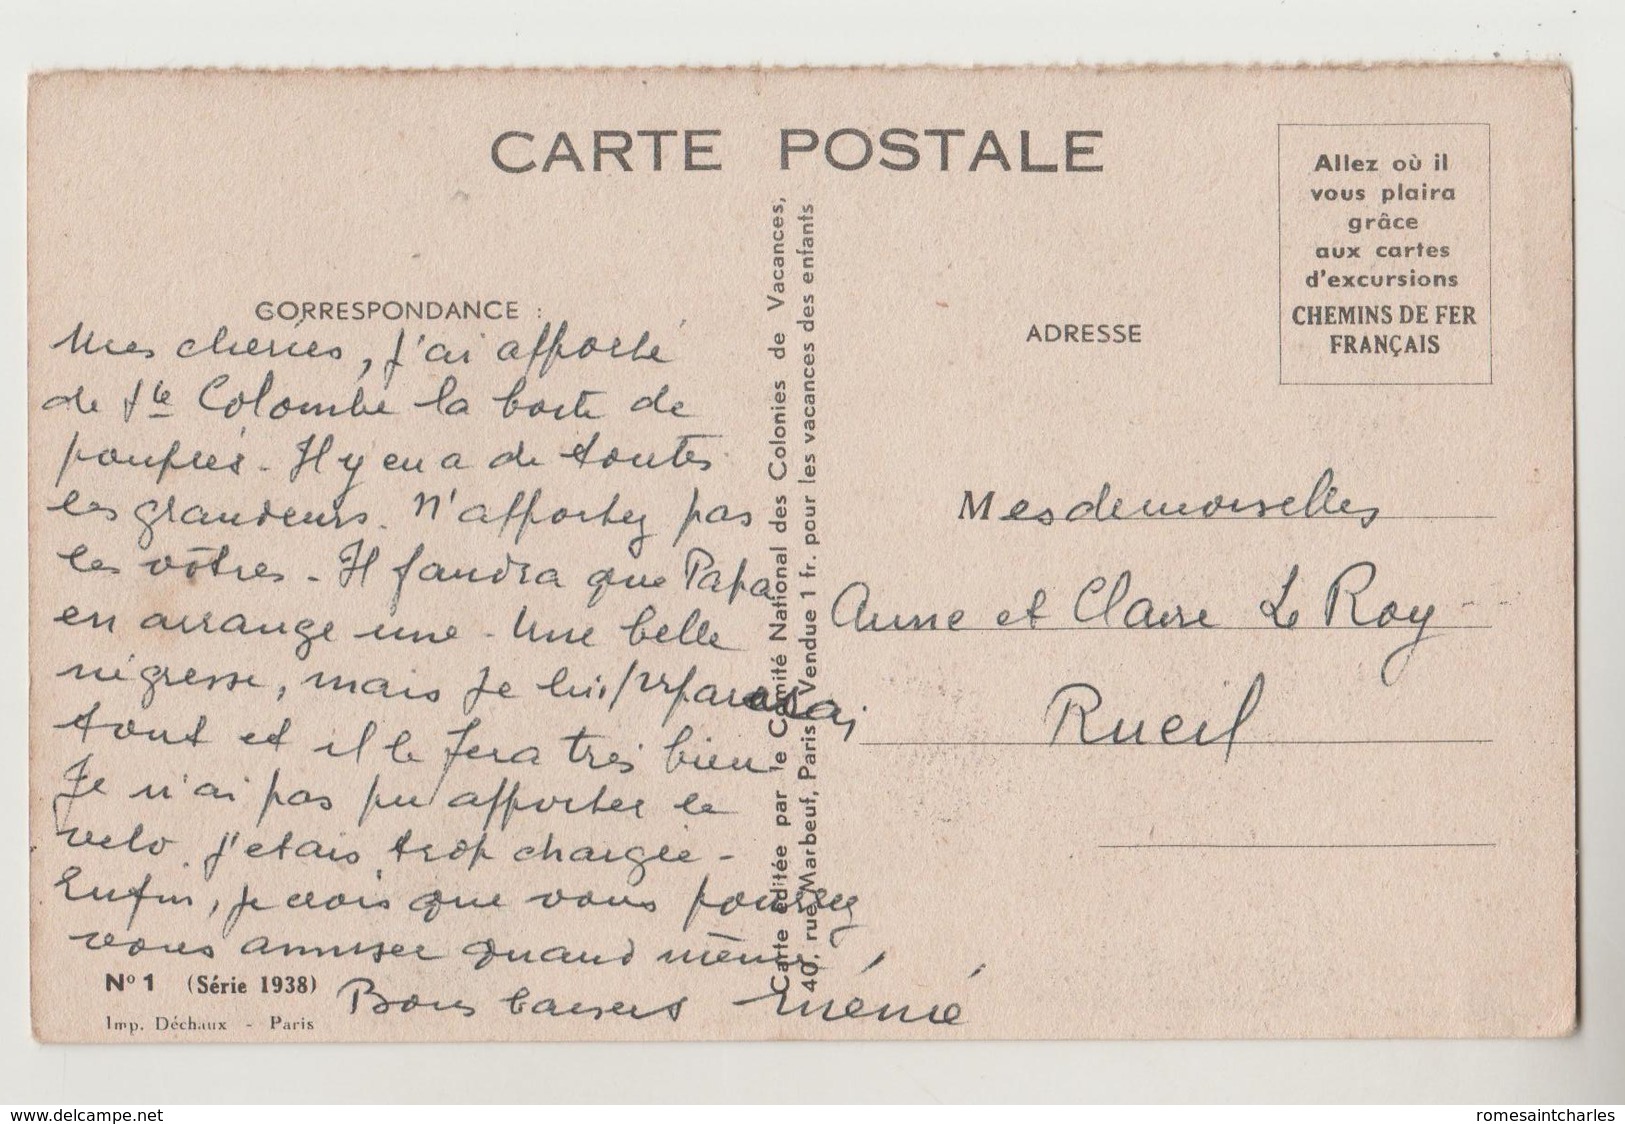 CARTE POSTALE
Allez où il
vous plaira
grâce
aux cartes
d'excursions
CHEMINS DE FER
FRANÇAIS
CORRESPONDANCE :
Mes cheries, j'ai apporté
de Ste Colombe la boite de
poupées. Il y en a de toutes
les grandeurs. N'apportez pas
les vôtres. Il faudra que Papa
en arrange une. Une belle
négresse, mais je lui préparerai
tout et il le fera très bien
Je n'ai pas pu apporter le
velo. J'etais trop chargée -
Enfin, je crois que vous pourrez
vous amuser quand même,
Bons baisers Mémé
Carte éditée par le Comité National des Colonies de Vacances,
40, rue Marbeuf, Paris. Vendue 1 fr. pour les vacances des enfants
ADRESSE
Mesdemoiselles
Anne et Claire Le Roy
Rueil
N° 1 (Série 1938)
Imp. Déchaux - Paris
www.delcampe.net
romesaintcharles